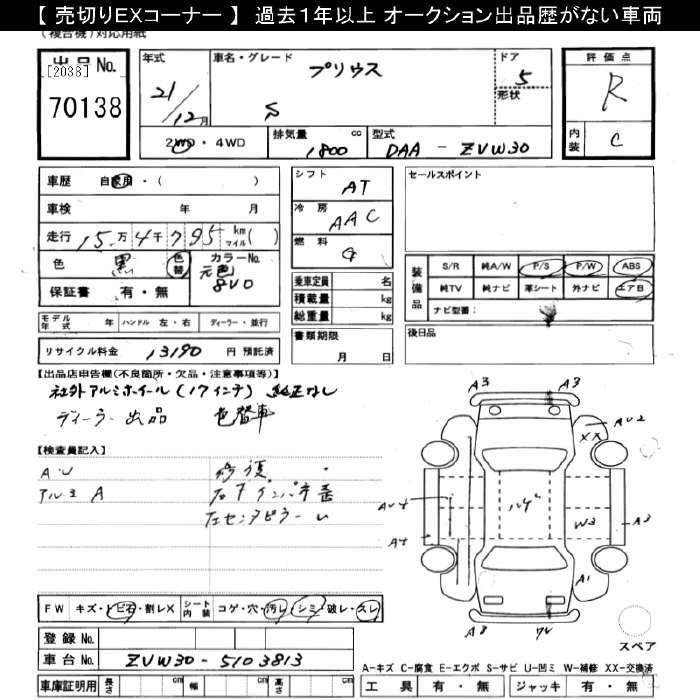 【 売切りEXコーナー 】 過去1年以上 オークション出品歴がない車両
(複合機)対応用紙
出品 No.
[2038]
70138
年式
21/12月
車名・グレード
プリウス
S
ドア
5
形状
評価点
R
内装
C
2WD・4WD
排気量 cc
1800
型式
DAA - ZVW30
車歴 自家用・( )
車検 年 月
走行 15万4千795 km マイル( )
色 黒 色替
カラーNo.
元色 8V0
保証書 有・無
シフト AT
冷房 AAC
燃料 G
乗車定員 名
積載量 kg
総重量 kg
セールスポイント
装備品
S/R 純A/W P/S P/W ABS
純TV 純ナビ 革シート 外ナビ エアB
ナビ型番:
モデル年式 年 ハンドル 左・右 ディーラー・並行
リサイクル料金 13190 円 預託済
書類期限
月 日
後日品
【出品店申告欄(不良箇所・欠品・注意事項等)】
社外アルミホイール(17インチ) 純正なし
ディーラー出品 色替車
【検査員記入】
A・U
アルミ A
修復
左センタピラー
A3 A3
AU2
XX
A4
W3
A3
A1
A8
FW キズ・トビ石・割レX シート内装 コゲ・穴・汚レ・シミ・破レ・スレ
登録 No.
車台 No. ZVW30-5103813
車庫証明用 長さ cm 幅 cm 高さ cm
スペア
A－キズ C－腐食 E－エクボ S－サビ U－凹ミ W－補修 XX－交換済
工具 有・無 ジャッキ 有・無